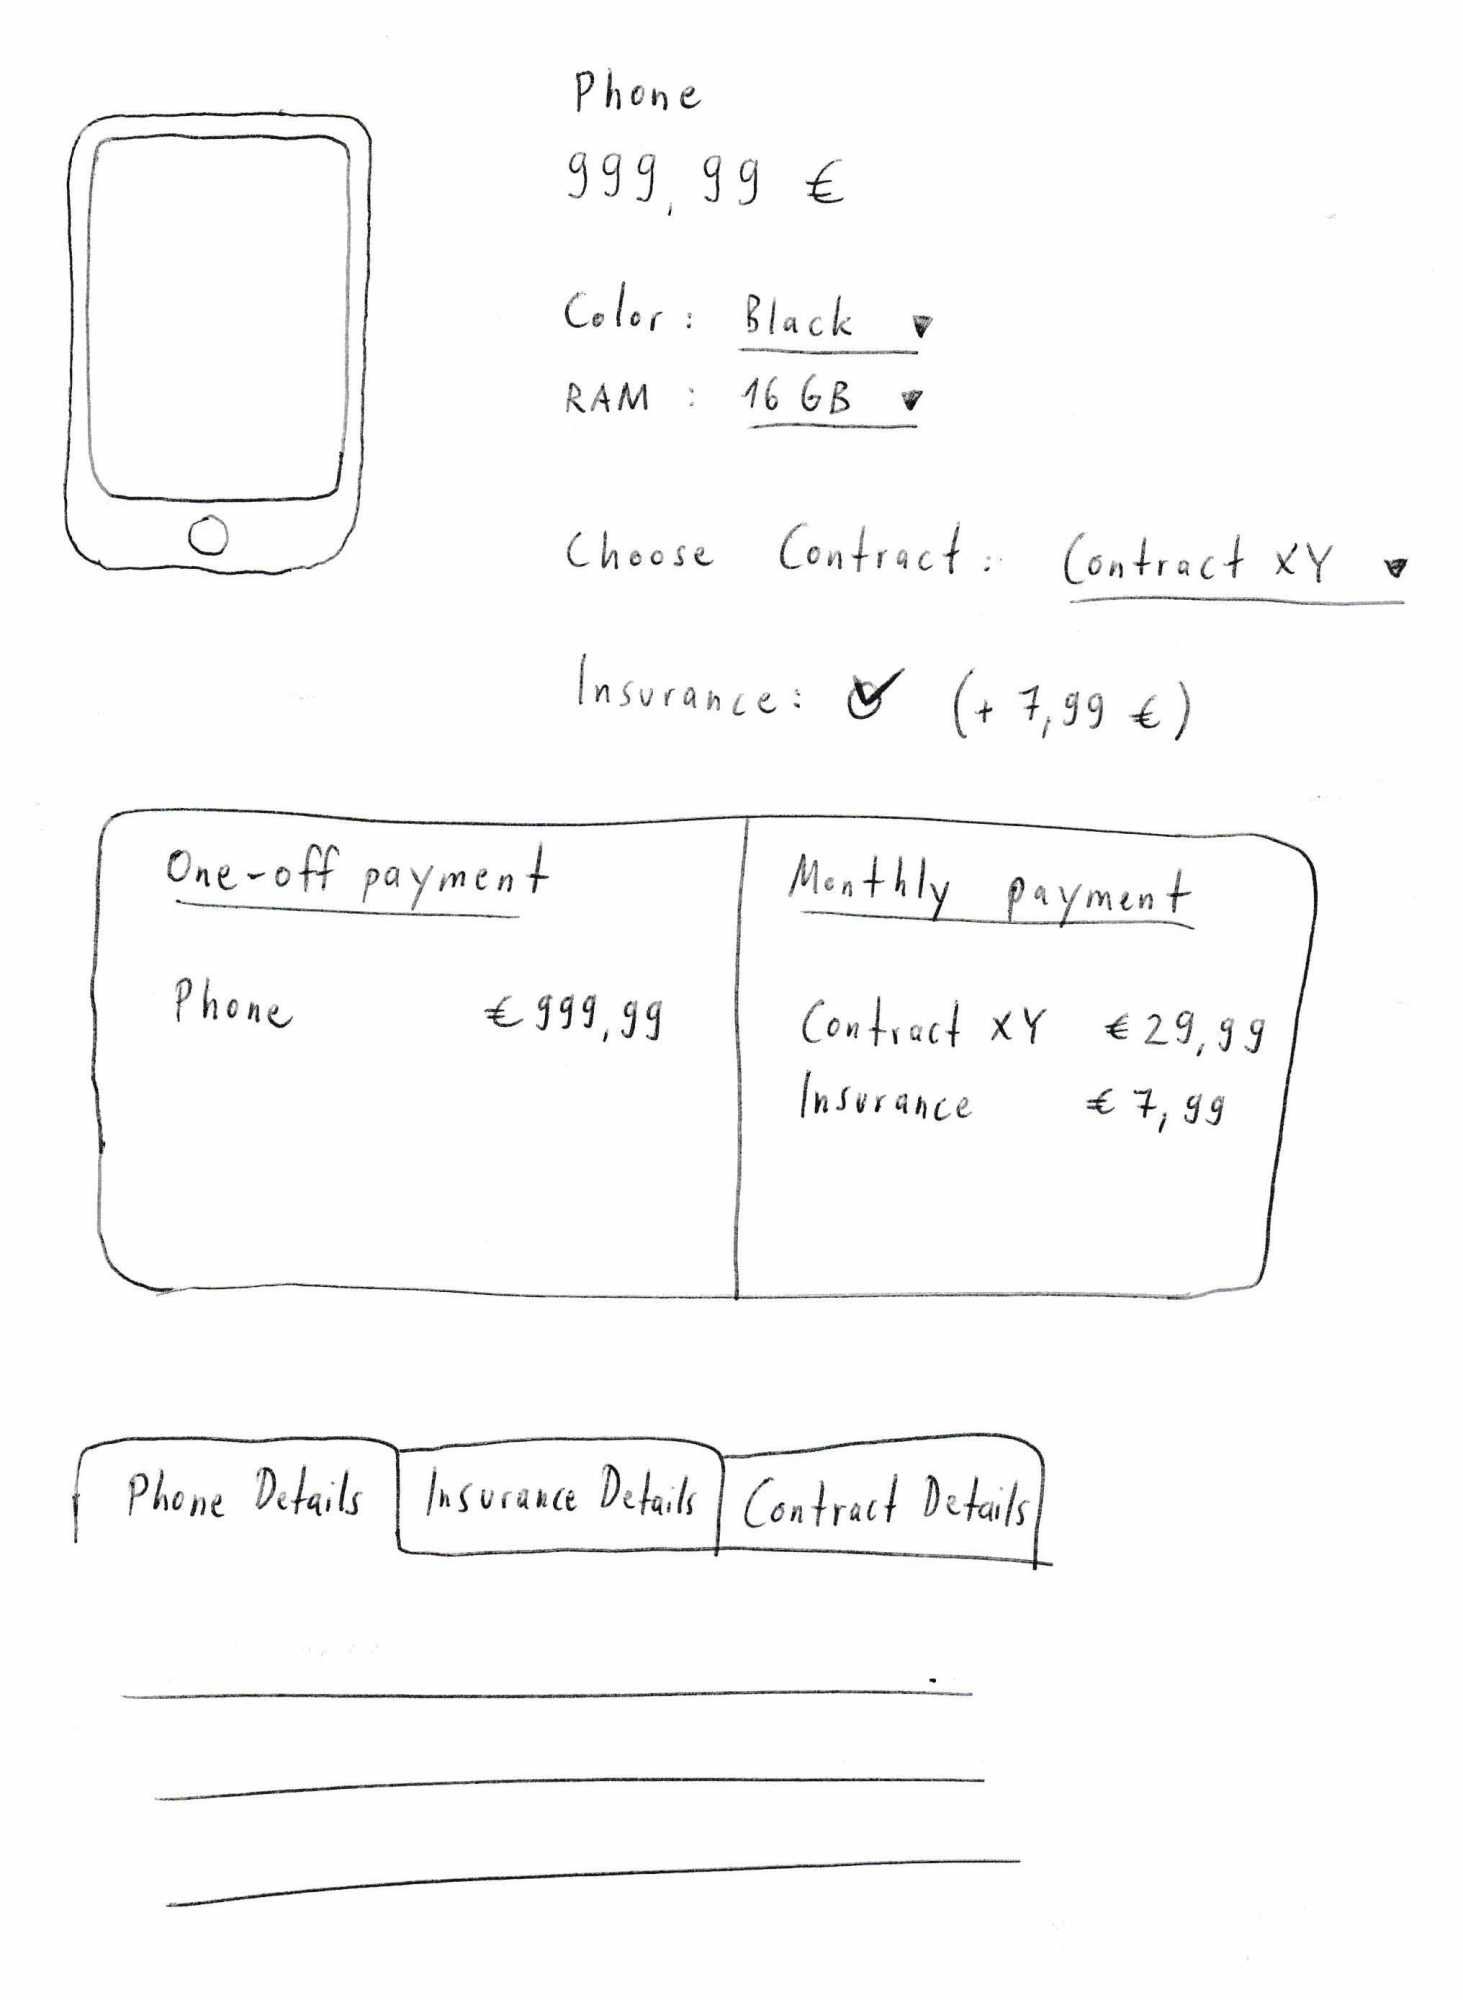 Phone
999,99 €
Color: Black
RAM: 16 GB
Choose Contract: Contract XY
Insurance: (+ 7,99 €)
One-off payment
Phone € 999,99
Monthly payment
Contract XY € 29,99
Insurance € 7,99
Phone Details Insurance Details Contract Details